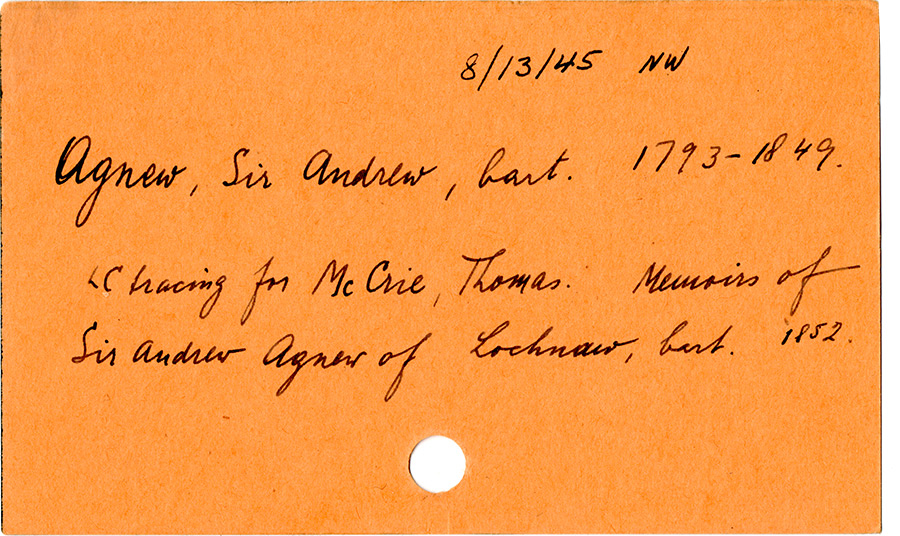 8/13/45 NW
Agnew, Sir Andrew, bart. 1793-1849.
LC tracing for McCrie, Thomas. Memoirs of
Sir Andrew Agnew of Lochnaw, bart. 1852.